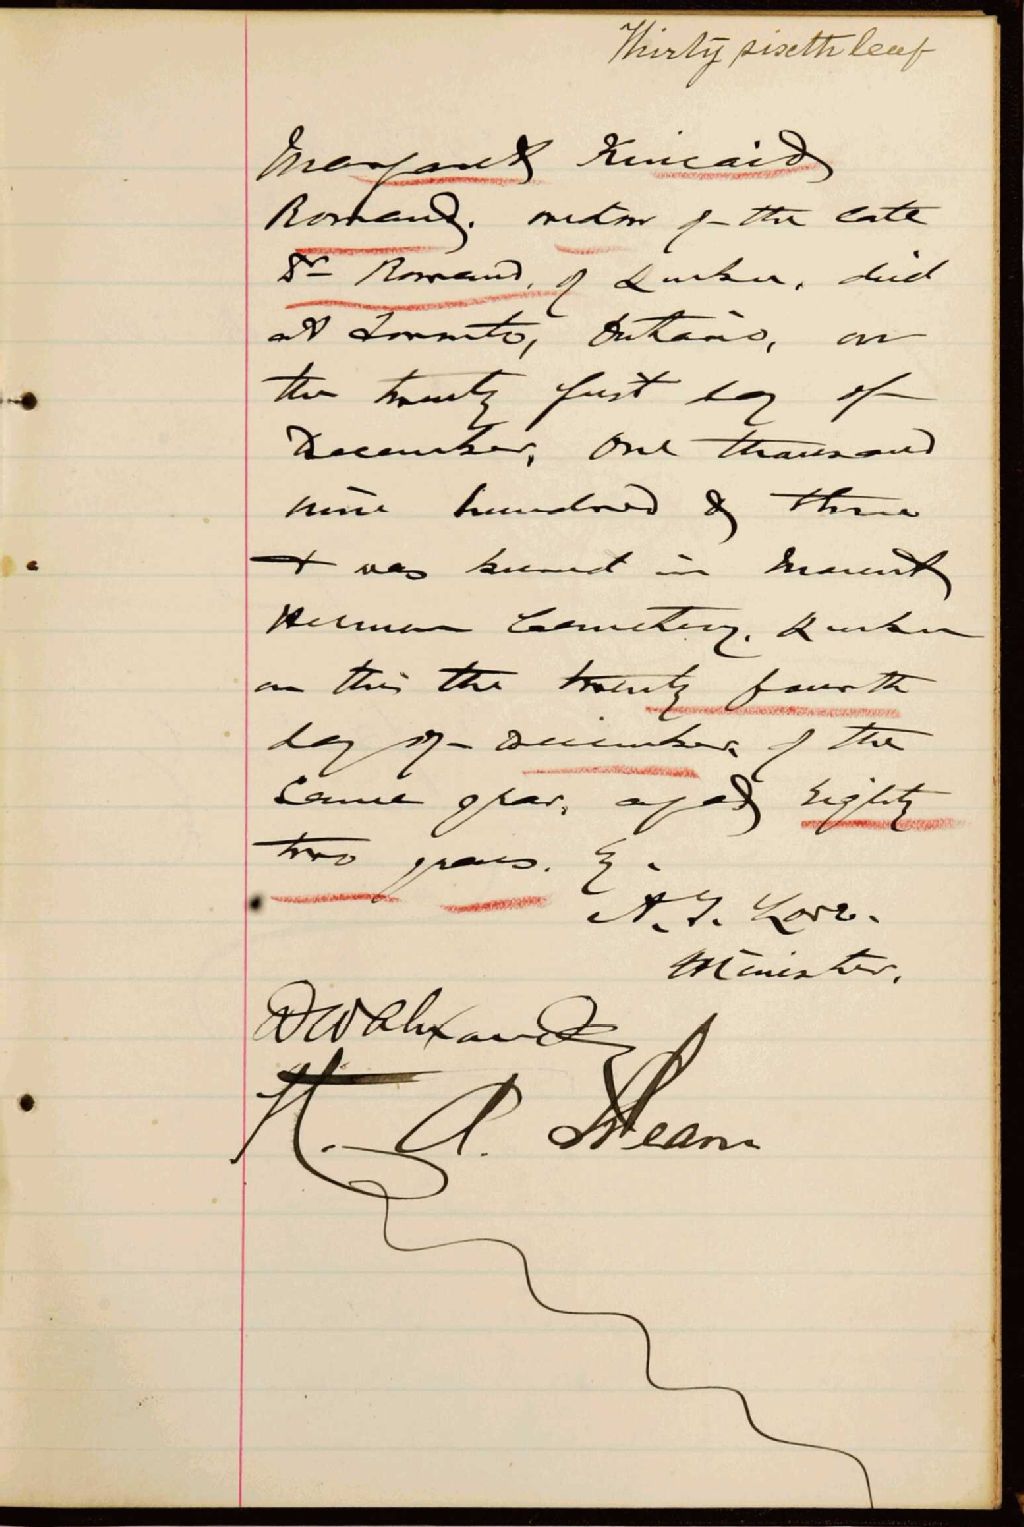 Thirty sixth leaf
Margaret Kincaid
Rowand. widow of the late
Dr Rowand, of Quebec, died
at Toronto, Ontario, on
the twenty first day of
December, One thousand
nine hundred & three
+ was buried in Mount
Hermon Cemetery. Quebec
on this the twenty fourth
day of December of the
same year, aged Eighty
two years. By.
A. T. Love.
Minister.
D W
H. A.